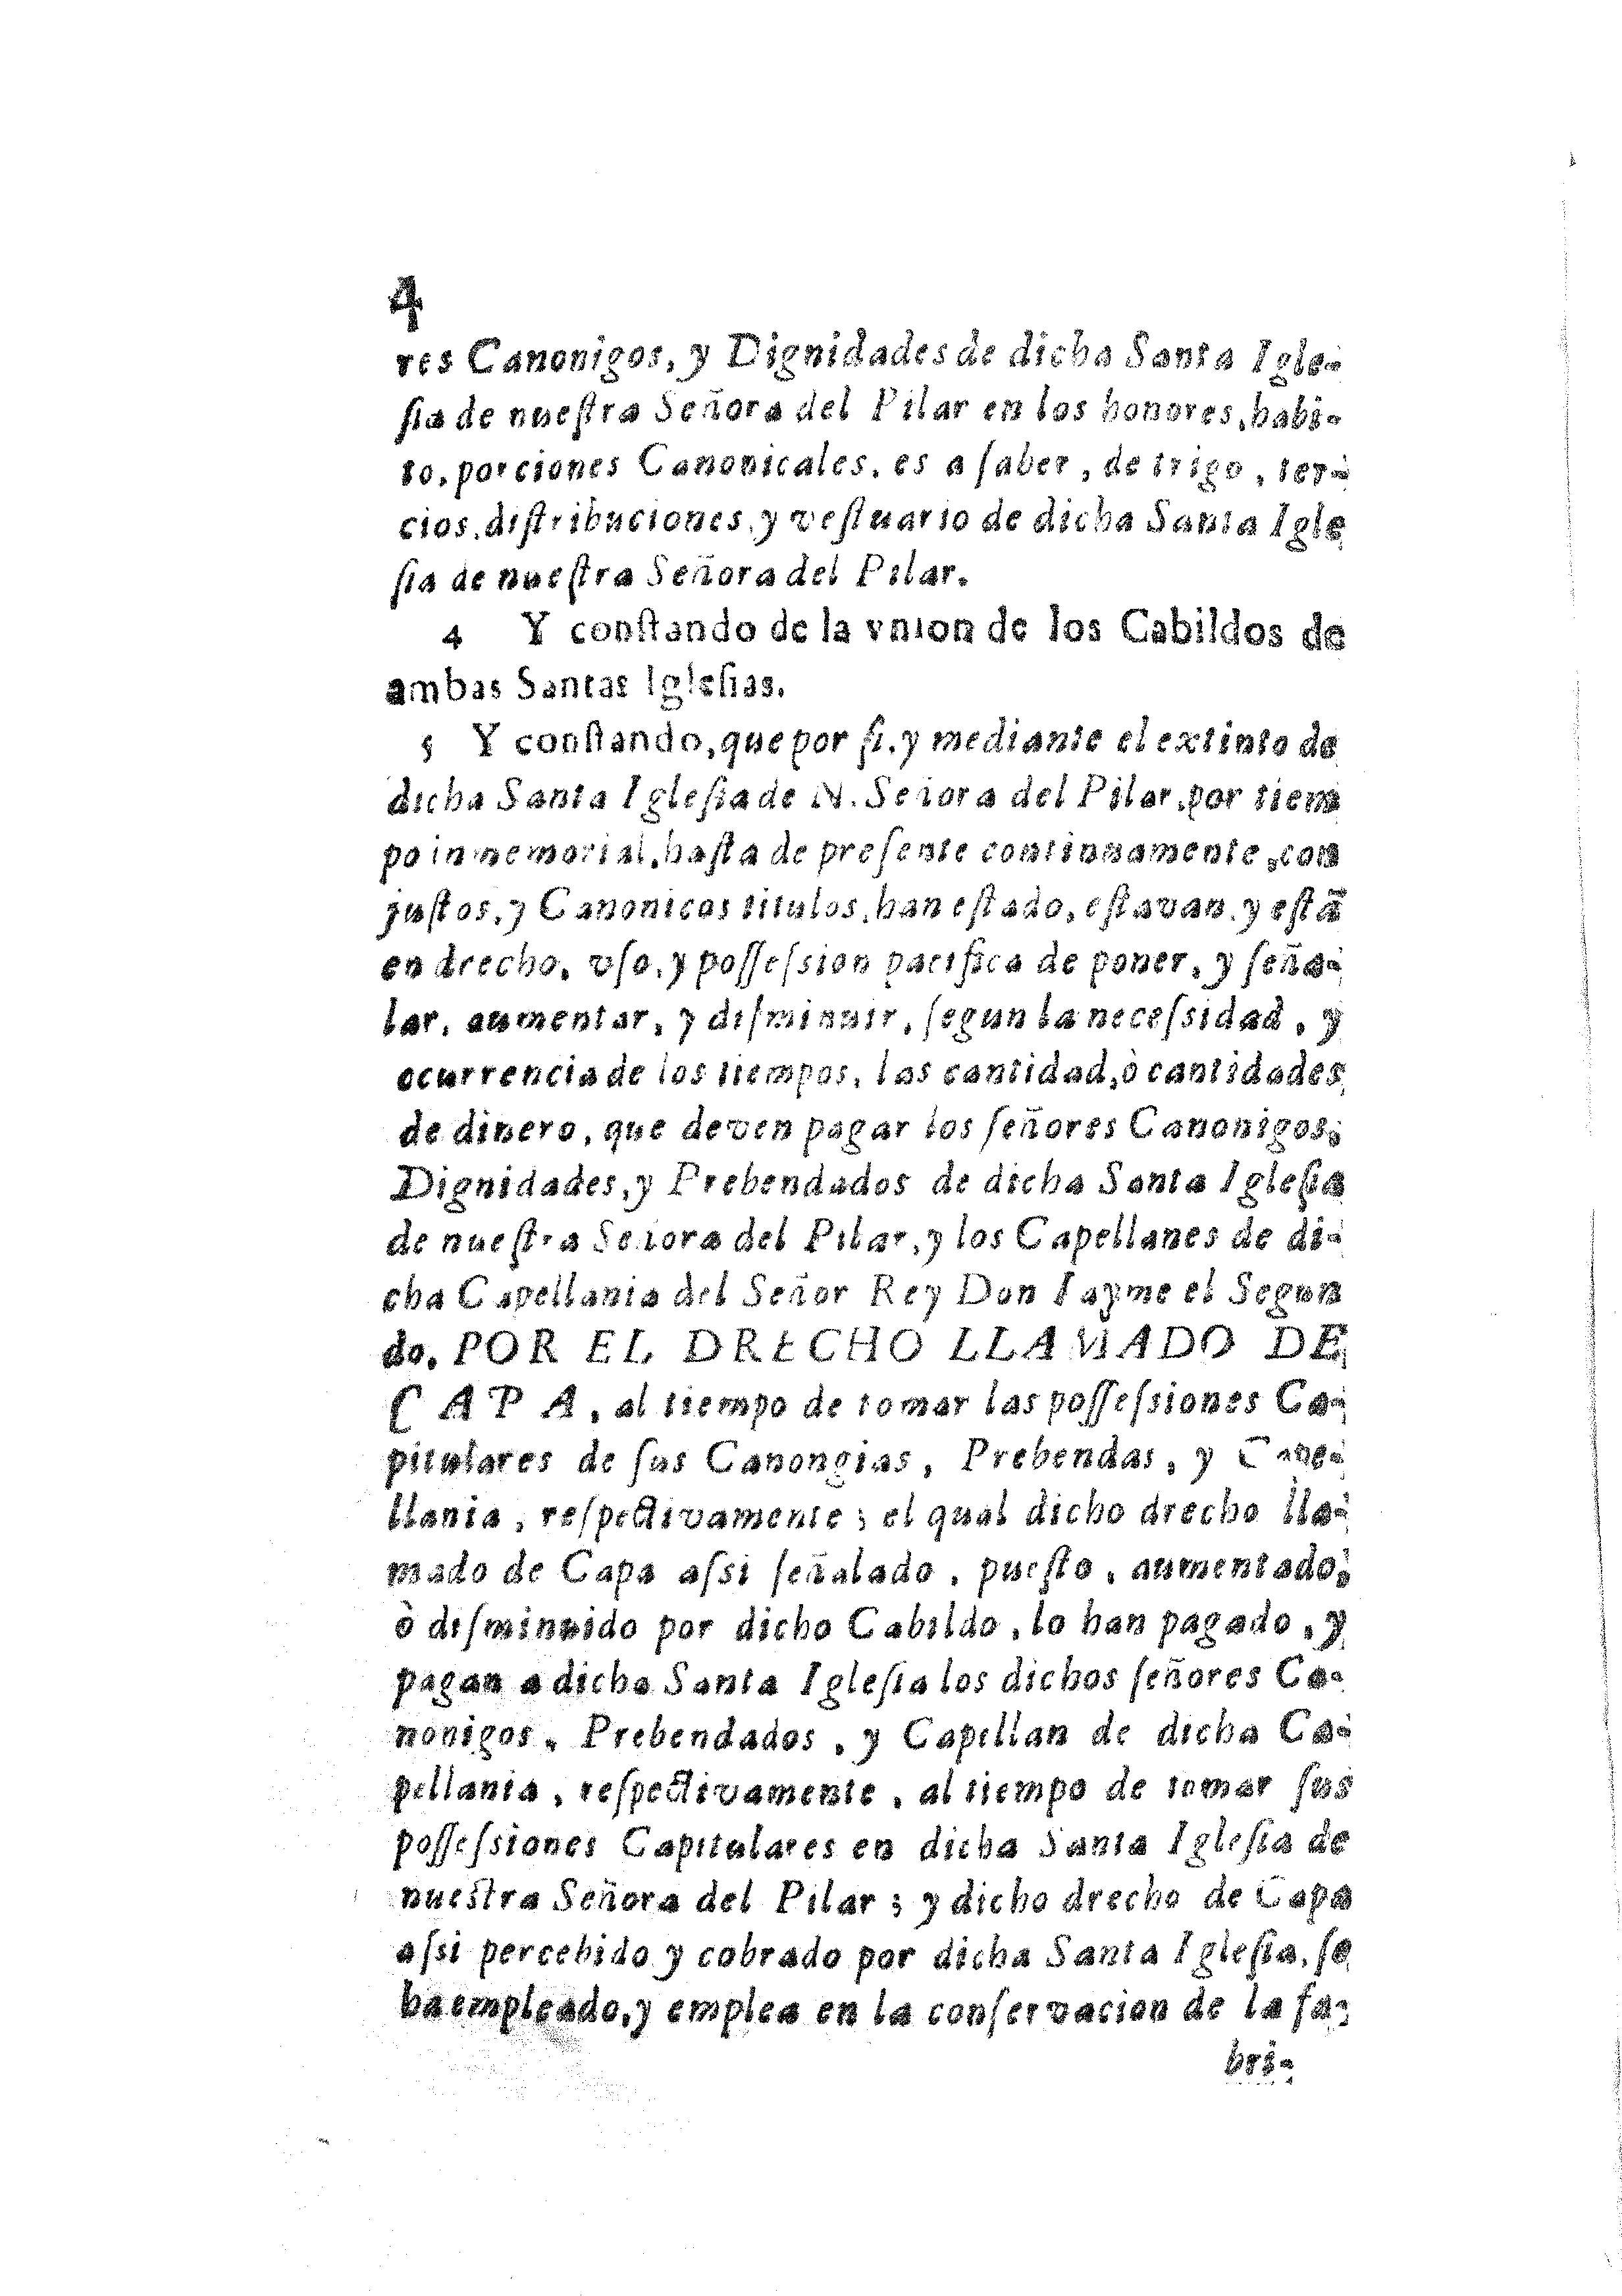 4
res Canonigos, y Dignidades de dicha Santa Igle-
ſia de nueſtra Señora del Pilar en los honores, habi-
to, porciones Canonicales, es a ſaber, de trigo, ter-
cios, diſtribuciones, y veſtuario de dicha Santa Igle
ſia de nueſtra Señora del Pilar.
4 Y conſtando de la vnion de los Cabildos de
ambas Santas Igleſias.
5 Y conſtando, que por ſi, y mediante el extinto de
dicha Santa Igleſia de N. Señora del Pilar, por tiem
po inmemorial, haſta de preſente continuamente, con
juſtos, y Canonicos titulos, han eſtado, eſtavan, y eſtã
en drecho, vſo, y poſſeſsion pacifica de poner, y ſeña-
lar, aumentar, y diſminuir, ſegun la neceſsidad, y
ocurrencia de los tiempos, las cantidad, ò cantidades
de dinero, que deven pagar los ſeñores Canonigos,
Dignidades, y Prebendados de dicha Santa Igleſia
de nueſtra Señora del Pilar, y los Capellanes de di-
cha Capellania del Señor Rey Don Iayme el Segun
do, POR EL DRECHO LLAMADO DE
CAPA, al tiempo de tomar las poſſeſsiones Ca-
pitulares de ſus Canongias, Prebendas, y Cape-
llania, reſpectivamente; el qual dicho drecho lla-
mado de Capa aſsi ſeñalado, pueſto, aumentado,
ò diſminuido por dicho Cabildo, lo han pagado, y
pagan a dicha Santa Igleſia los dichos ſeñores Ca-
nonigos, Prebendados, y Capellan de dicha Ca-
pellania, reſpectivamente, al tiempo de tomar ſus
poſſeſsiones Capitulares en dicha Santa Igleſia de
nuestra Señora del Pilar; y dicho drecho de Capa
aſsi percebido y cobrado por dicha Santa Igleſia, ſe
ha empleado, y emplea en la conſervacion de la fa-
bri-